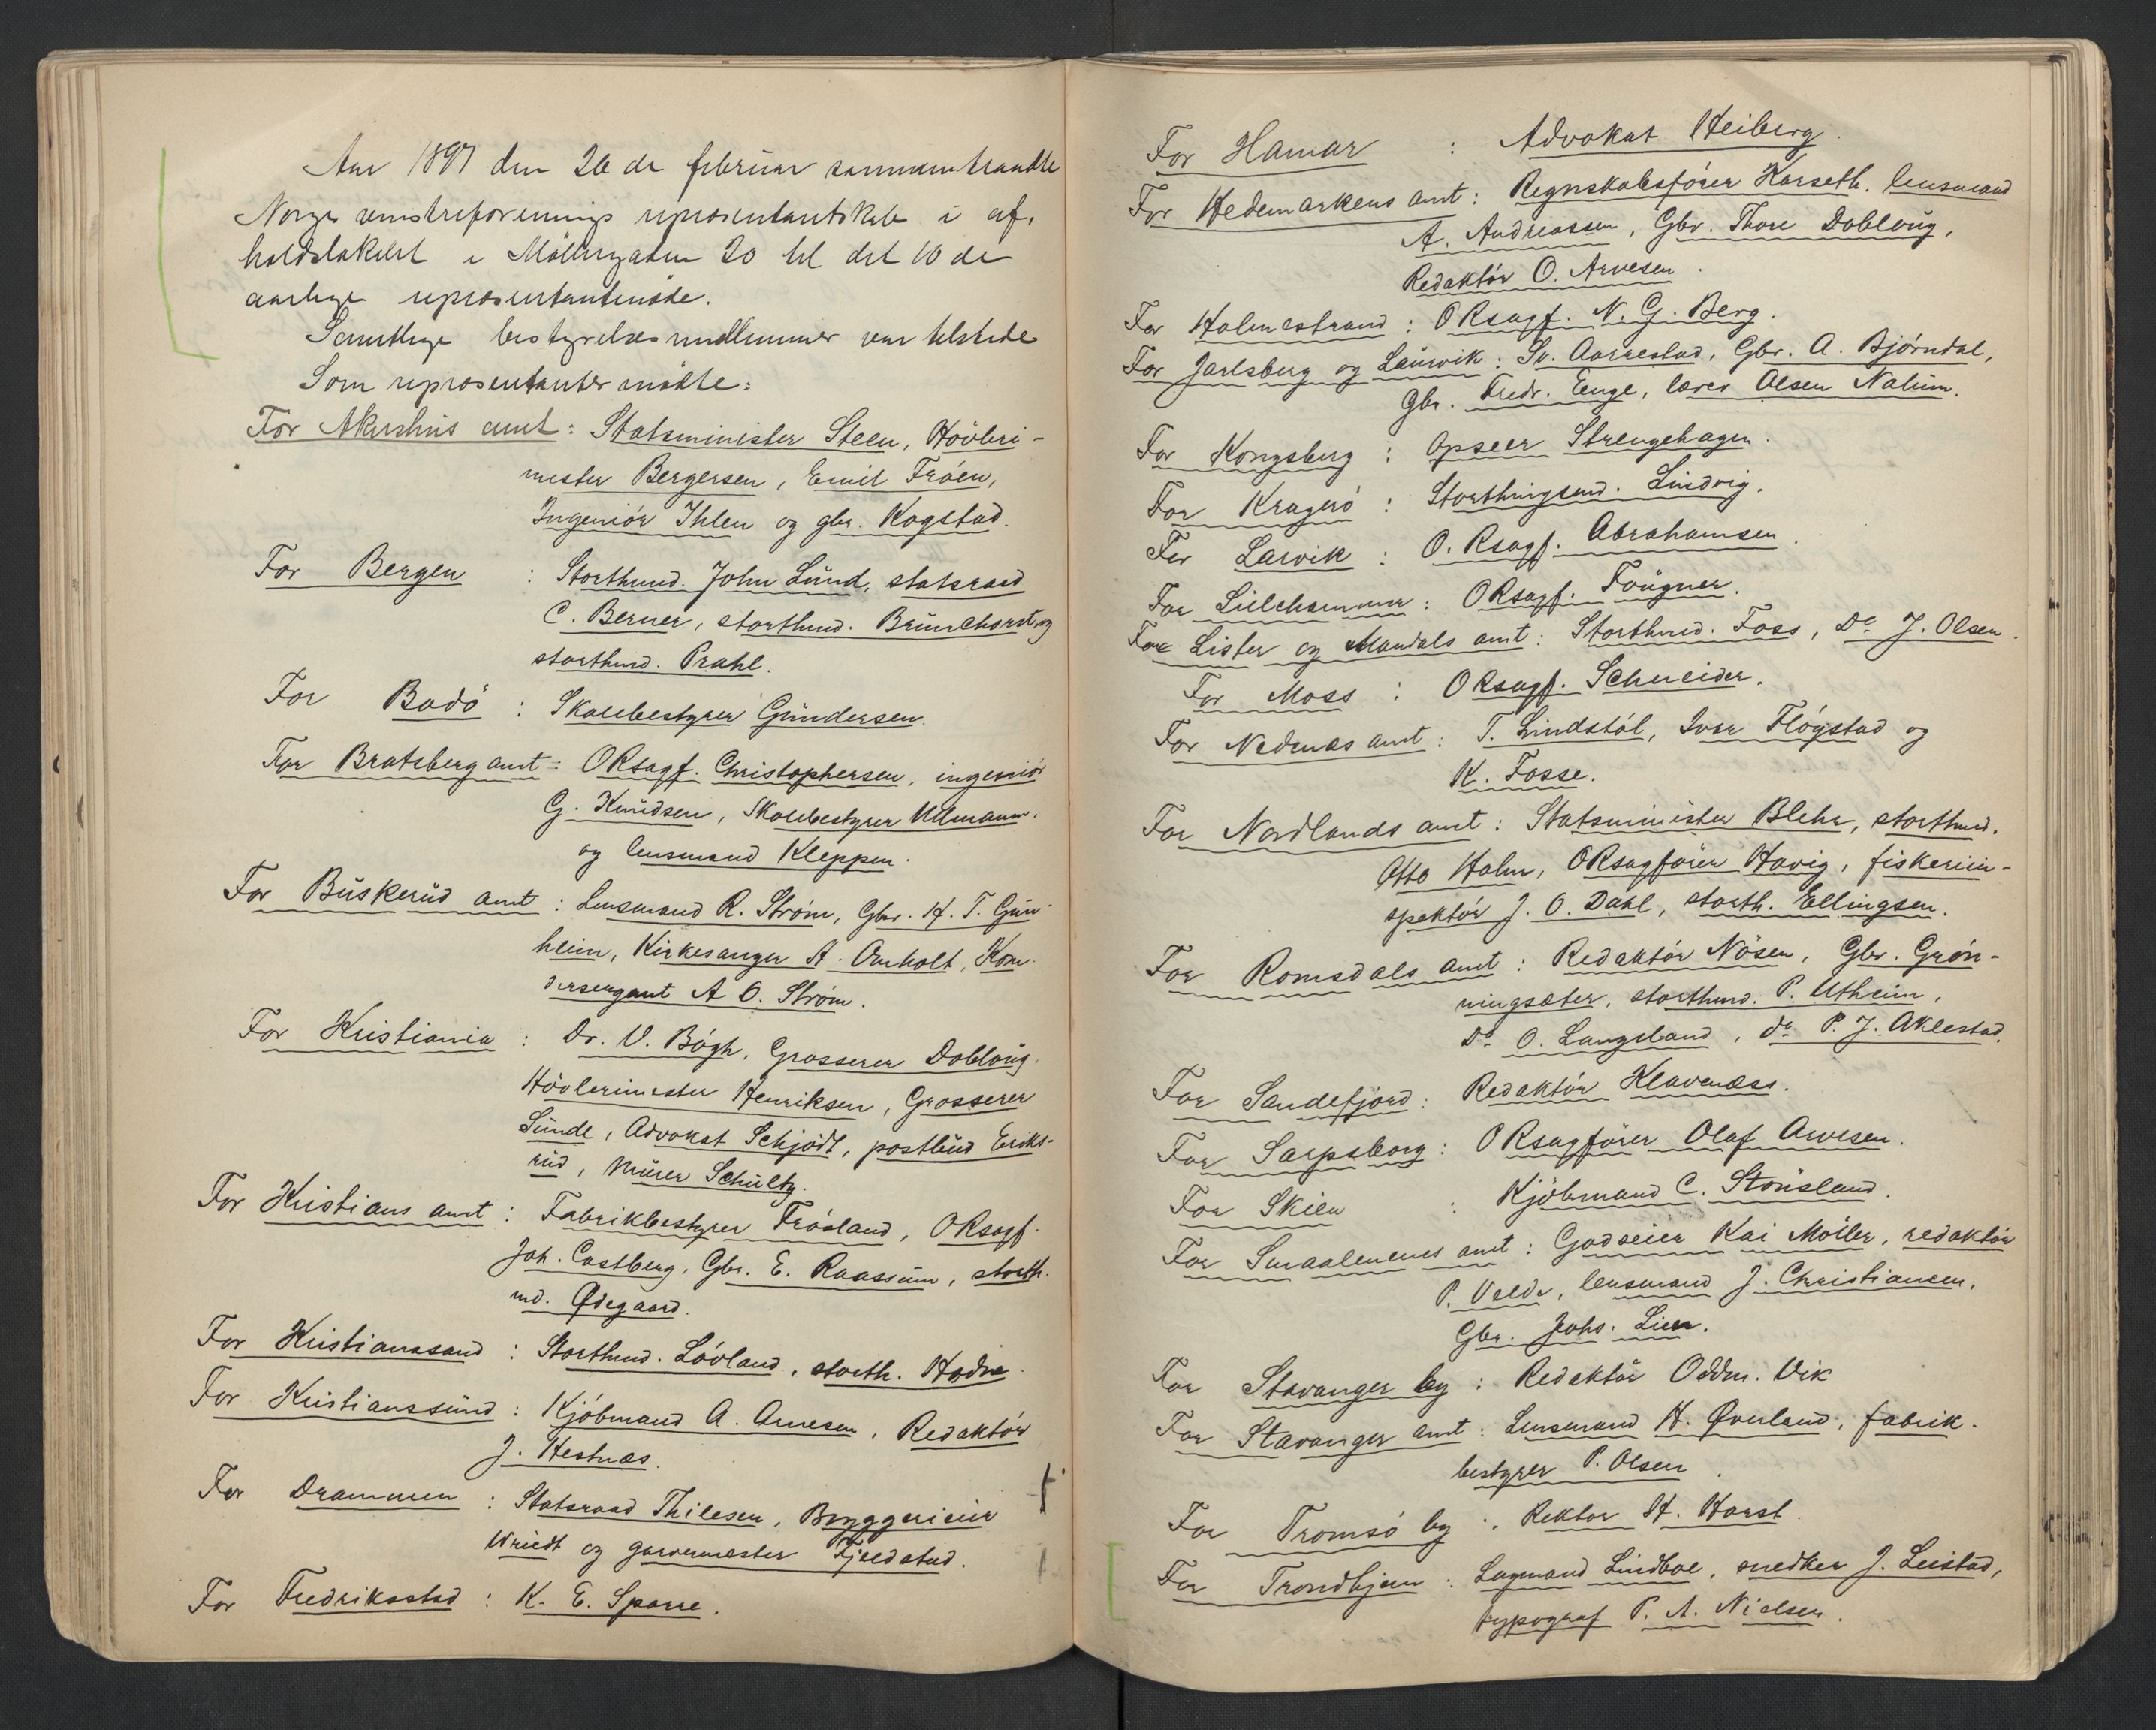 Aar 1897 den 26de februar sammentraadte
Norges venstreforenings repræsentantskab i af-
holdslokalet i Möllergaden 20 til det 10de
aarlige repræsentantmöde.
Samtlige bestyrelsesmedlemmer var tilstede
Som repræsentanter mödte:
For Akershus amt: Statsminister Steen, Hövleri-
mester Bergersen, Emil Fröen,
Ingeniör Ihlen og gbr. Kogstad.
For Bergen : Storthmd. John Lund, statsraad
C. Berner, storthmd. Brunchorst og
storthmd. Prahl.
For Bodö : Skolebestyrer Gundersen.
For Bratsberg amt: ORsagf. Christophersen, ingeniör
G. Knudsen, Skolebestyrer Ullmann.
og lensmand Kleppen.
For Buskerud amt : Lensmand R. Ström, Gbr. H. T. Gun-
heim, Kirkesanger A. Omholt, Kom-
dersergant A O. Ström.
For Kristiania : Dr. V. Bögh, Grosserer Dobloug.
Hövlerimester Henriksen, Grosserer
Sunde, Advokat Schjödt, postbud Eriks-
rud, Murer Schultz.
For Kristians amt : Fabrikbestyrer Fröisland, ORsagf.
Joh. Castberg, Gbr. E. Raassum, storth.
md. Ødegaard.
For Kristianssand : Storthmd. Lövland, storth. Hodne.
For Kristianssund : Kjöbmand A. Arnesen, Redaktör
J. Hestnæs.
For Drammen : Statsraad Thilesen, Bryggerieier
Wriedt og garvermester Fjeldstad.
For Fredriksstad : K. E. Sparre.
For Hamar : Advokat Heiberg.
For Hedemarkens amt : Regnskabsförer Karseth. lensmand
A. Andreassen, Gbr. Thore Dobloug,
Redaktör O. Arvesen.
For Holmestrand : ORsagf. N. G. Berg.
For Jarlsberg og Laurvik : Sv. Aarrestad, Gbr. A. Bjørndal,
Gbr. Fredr. Enge, lærer Olsen Nalum.
For Kongsberg : Opseer Strengehagen.
For Kragerö : Storthingsmd. Lindvig.
For Larvik : O. Rsagf. Abrahamsen.
For Lillehammer : ORsagf. Fougner.
For Lister og Mandals amt : Storthmd. Foss, Do J. Olsen.
For Moss : ORsagf. Schneider.
For Nedenæs amt : T. Lindstöl, Ivar Flögstad og
K. Fosse.
For Nordlands amt : Statsminister Blehr, storthmd.
Otto Holm, ORsagförer Havig, fiskeriin-
spektör J. O. Dahl, storth. Ellingsen.
For Romsdals amt : Redaktör Nösen, Gbr. Grön-
ningsæter, storthmd. P. Utheim,
Do O. Langeland, do P. J. Aklestad.
For Sandefjord : Redaktör Klavenæss.
For Sarpsborg : ORsagförer Olaf Arvesen.
For Skien : Kjöbmand C. Stousland.
For Smaalenenes amt : Godseier Kai Möller, redaktör
P. Velde, lensmand J. Christiansen,
Gbr. Johs. Lien.
For Stavanger by : Redaktör Oddm. Vik
For Stavanger amt : Lensmand H. Øverland, fabrik-
bestyrer P. Olsen.
For Tromsö by : Rektor H. Horst.
For Trondhjem : Lagmand Lindboe, snedker J. Leistad,
typograf P. A. Nielsen.